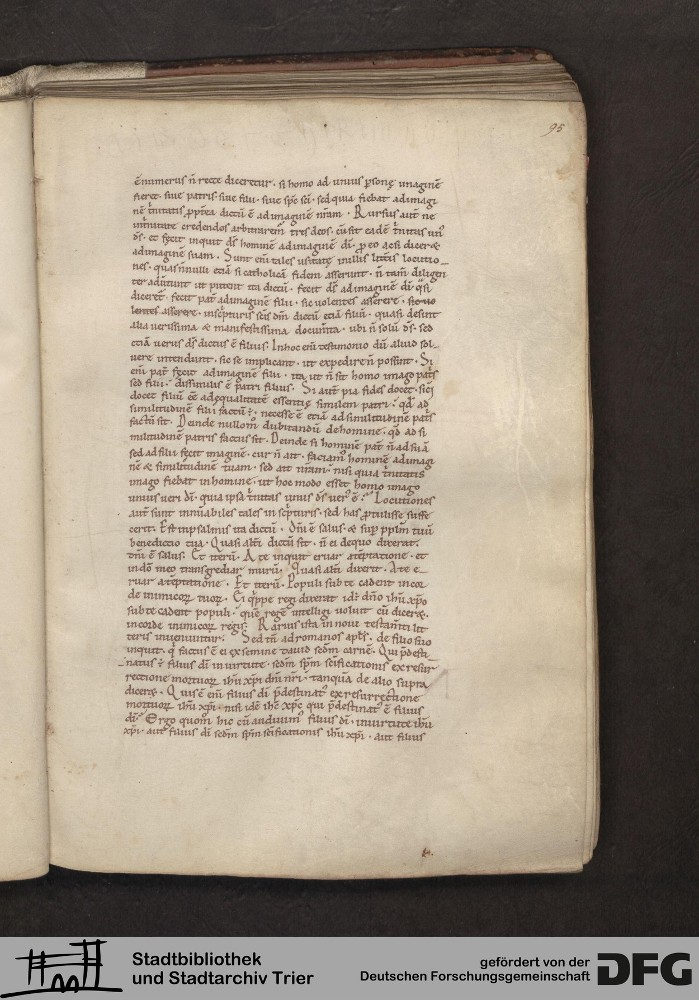 95
ē numerus n̄ recte diceretur · si homo ad unius psonę imaginē
fieret · siue patris · siue filii · siue sp̄c sc̄i · sed quia fiebat ad imagi
nē t̄nitatis ꝓpterea dictū ē ad imaginē nr̄am · Rursus aut̄ ne
in t̄nitate credendos arbitraremur tres deos · cū sit eadē t̄nitas un'
d̄s · et fecit inquit d̄s hominē ad imaginē dī · ꝓ eo ac si diceret
ad imaginē suam · Sunt eni tales usitatę in illis litteris locutio
nes · quas nnulli etiā si catholicā fidem asserunt · n̄ tam diligen
ter aduertunt ut putent ita dictū · fecit d̄s ad imaginē dī · q̄si
diceret̄ fecit pat̄ ad imaginē filii · sic uolentes asserere · sic uo
lentes asserere · in scpturis scīs dm̄ dictū etiā filiū · quasi desint
alia uerissima & manifestissima documta · ubi n̄ solū d̄s · sed
etiā uerus d̄s dictus ē filius · In hoc eni testimonio dū aliud sol
uere intendunt · sic se implicant · ut expedire n̄ possint · Si
eni pat̄ fecit ad imaginē filii · ita ut n̄ sit homo imago pat̄s
sed filii · dissimilis ē patri filius · Si aut̄ pia fides docet · sic
docet filiū ēē ad equalitatē essentię similem patri · qd ad
similitudinē filii factū ē · necesse ē etiā ad similitudinē pat̄s
factū sit · Deinde
militudinē patris factus sit · Deinde si hominē pat̄ n̄ ad suā
sed ad filii fecit imaginē · cur n̄ ait · faciam' hominē ad imagi
nē & similitudinē tuam · sed ait nr̄am · nisi quia t̄nitatis
imago fiebat in homine · ut hoc modo esset homo imago
unius ueri dī · quia ipsa t̄nitas unus d̄s uer' ē · Locutiones
aut̄ sunt innūabiles tales in scpturis · sed has ꝓtulisse suffe
cerit · Est in psalmis ita dictū · Dn̄i ē salus · & sup pplm tuū
benedictio tua · Quasi alt̄i dictū sit · n̄ ei de quo dixerat ·
dn̄i ē salus · Et iterū · A te inquit eruar a teptatione · et
in dō meo transgrediar murū · Quasi alt̄i dixerit · A te e
ruar a teptatione · Et iterū · Populi sub te cadent in cor
de inimicoꝝ tuoꝝ · Ei q̄ppe regi dixerat id est dn̄o ihū xp̄o
sub te cadent populi · quē regē intelligi uoluit cū diceret ·
in corde inimicoꝝ regis · Rarius ista in noui testam̄ti lit
teris inueniuntur · Sed tn̄ ad romanos aptls · de filio suo
inquit · q̄ factus ē ei ex semine dauid sedm carnē · Qui pdesti
natus ē filius dī in uirtute · sedm spm̄ scīficationis ex resur
rectione mortuoꝝ ihū xpi dn̄i nr̄i · tanquā de alio supra
diceret · Quis ē eni filius dī pdestinat' ex resurrectione
mortuoꝝ ihū xpi · nisi idē ihc xpc qui pdestinat' ē filius
dī · Ergo quom̄ hic cū audim' filius dī · in uirtute ihū
xpi · aut filius dī sedm spm̄ scīficationis ihū xpi · aut filius
Stadtbibliothek
und Stadtarchiv Trier
gefördert von der
Deutschen Forschungsgemeinschaft
DFG